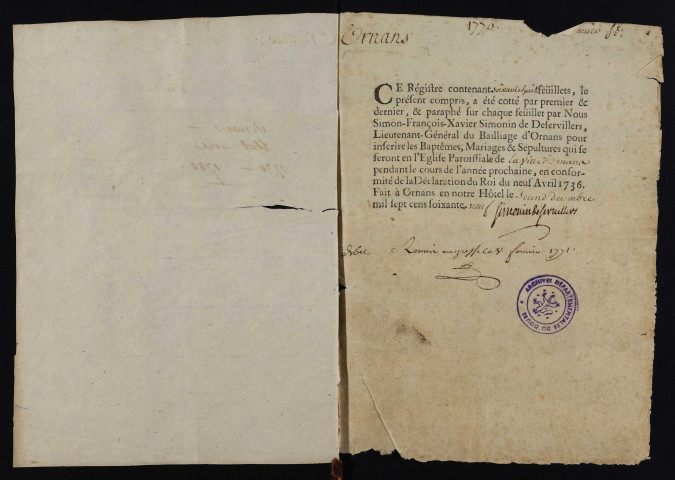 Ornans
1770
CE Régistre contenant soixante huit feüillets, le
présent compris, a été cotté par premier &
dernier, & paraphé sur chaque feüillet par Nous
Simon-François-Xavier Simonin de Deservillers,
Lieutenant-Général du Bailliage d'Ornans pour
inscrire les Baptêmes, Mariages & Sépultures qui se
feront en l'Eglise Paroissiale de la ville d'ornans
pendant le cours de l'année prochaine, en confor-
mité de la Déclaration du Roi du neuf Avril 1736.
Fait à Ornans en notre Hôtel le second decembre
mil sept cens soixante neuf Simonin deservillers
1771
ARCHIVES DÉPARTEMENTALES DU DOUBS